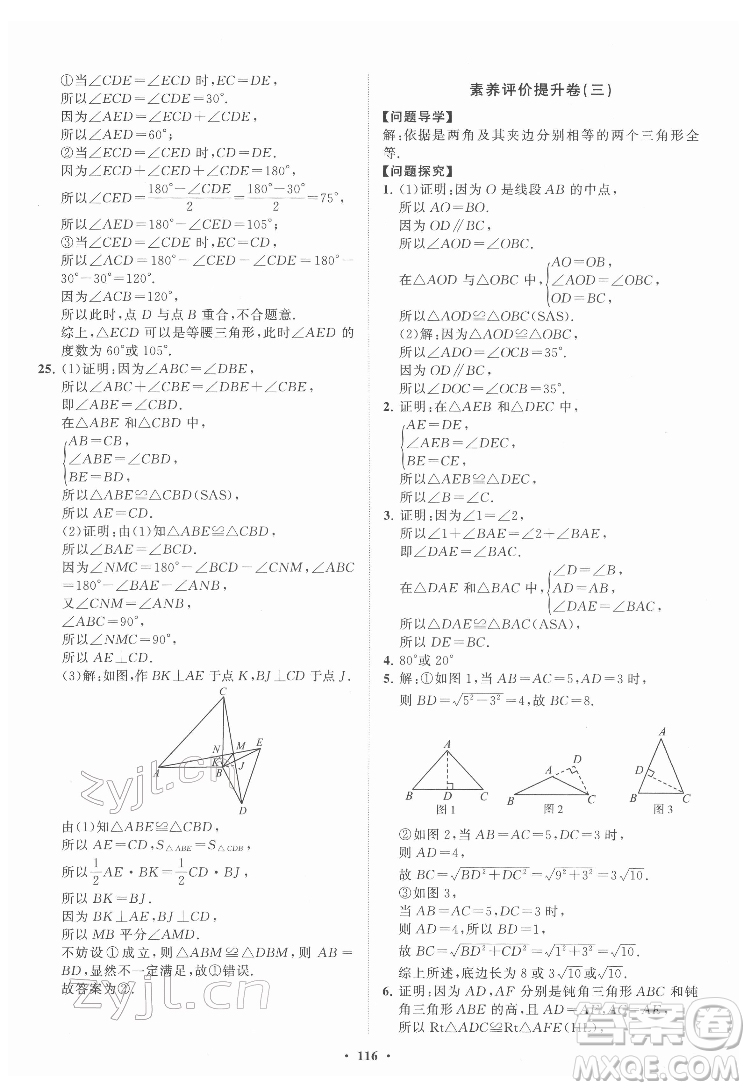 ①当∠CDE=∠ECD 时,EC=DE,
所以∠CDE=∠ECD=30°.
因为∠AED=∠ECD+∠CDE,
所以∠AED=60°;
②当∠ECD=∠CED 时,CD=DE,
因为∠ECD+∠CED+∠CDE=180°,
所以∠CED=(180°-∠CDE)/2=(180°-30°)/2=75°,
所以∠AED=180°-∠CED=105°;
③当∠CED=∠CDE 时,EC=CD,
所以∠ACD=180°-∠CED-∠CDE=180°-
30°-30°=120°,
因为∠ACB=120°,
所以此时,点 D 与点 B 重合,不合题意.
综上,△ECD 可以是等腰三角形,此时∠AED 的
度数为 60°或 105°.
25. (1)证明:因为∠ABC=∠DBE,
所以∠ABC+∠CBE=∠DBE+∠CBE,
即∠ABE=∠CBD.
在△ABE 和△CBD 中,
{AB=CB,
∠ABE=∠CBD,
BE=BD,
所以△ABE≌△CBD(SAS),
所以 AE=CD.
(2)证明:由(1)知△ABE≌△CBD,
所以∠BAE=∠BCD.
因为∠NMC=180°-∠BCD-∠CNM,∠ABC
=180°-∠BAE-∠ANB,
又∠CNM=∠ANB,
∠ABC=90°,
所以∠NMC=90°,
所以 AE⊥CD.
(3)解:如图,作 BK⊥AE 于点 K,BJ⊥CD 于点 J.
C
N M E
K J
A B
D
由(1)知△ABE≌△CBD,
所以 AE=CD,S△ABE=S△CDB,
所以 1/2 AE·BK=1/2 CD·BJ,
所以 BK=BJ.
所以 MB 平分∠AMD.
不妨设①成立,则△ABM≌△DBM,则 AB=
BD,显然不可能,故①错误.
故答案为②.
素养评价提升卷(三)
【问题导学】
解:依据是两角及其夹边分别相等的两个三角形全
等.
【问题探究】
1. (1)证明:因为 O 是线段 AB 的中点,
所以 AO=BO.
因为 OD∥BC,
所以∠AOD=∠OBC.
在△AOD 与△OBC 中,{AO=OB,
∠AOD=∠OBC,
OD=BC,
所以△AOD≌△OBC(SAS).
(2)解:因为△AOD≌△OBC,
所以∠ADO=∠OCB=35°.
因为 OD∥BC,
所以∠DOC=∠OCB=35°.
2. 证明:在△AEB 和△DEC 中,
{AE=DE,
∠AEB=∠DEC,
BE=CE,
所以△AEB≌△DEC,
所以∠B=∠C.
3. 证明:因为∠1=∠2,
所以∠1+∠BAE=∠2+∠BAE,
即∠DAE=∠BAC.
在△DAE 和△BAC 中,{∠D=∠B,
AD=AB,
∠DAE=∠BAC,
所以△DAE≌△BAC(ASA),
所以 DE=BC.
4. 80°或 20°
5. 解:①如图 1,当 AC=5,AD=3 时,
则 BD=√(5²-3²)=4,故 BC=8.
A
B D C
图 1
A D
B C
图 2
A
D
B C
图 3
②如图 2,当 AC=5,DC=3 时,
则 AD=4,
故 BC=√(BD²+DC²)=√(9²+3²)=3√10.
③如图 3,
当 AC=5,DC=3 时,
则 AD=4,
故 BC=√(BD²+DC²)=√(1²+3²)=√10.
综上所述,底边长是 8 或 3√10 或√10.
6. 证明:因为 AD、AF 分别是钝角三角形 ABC 和钝
角三角形 ABE 的高,且 AD=AF,AC=AE,
所以 Rt△ADC≌Rt△AFE(HL),
• 116 •
zyjl.cn
zyjl.cn
答案圈
MXQE.COM